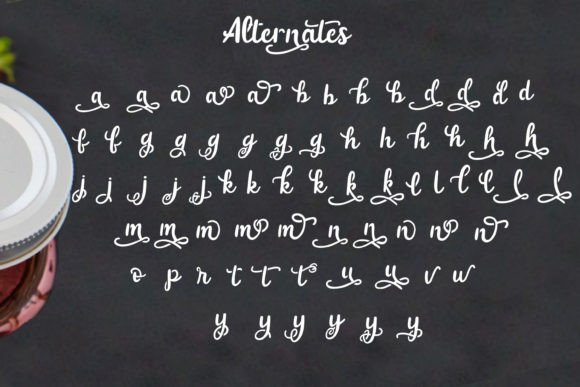 Alternates
a a a a a b b b b d d d d
f f g g g g g g h h h h h h
j j j j j k k k k k k l l l l l l
m m m m m n n n n n
o p r t t t u u v w
y y y y y y